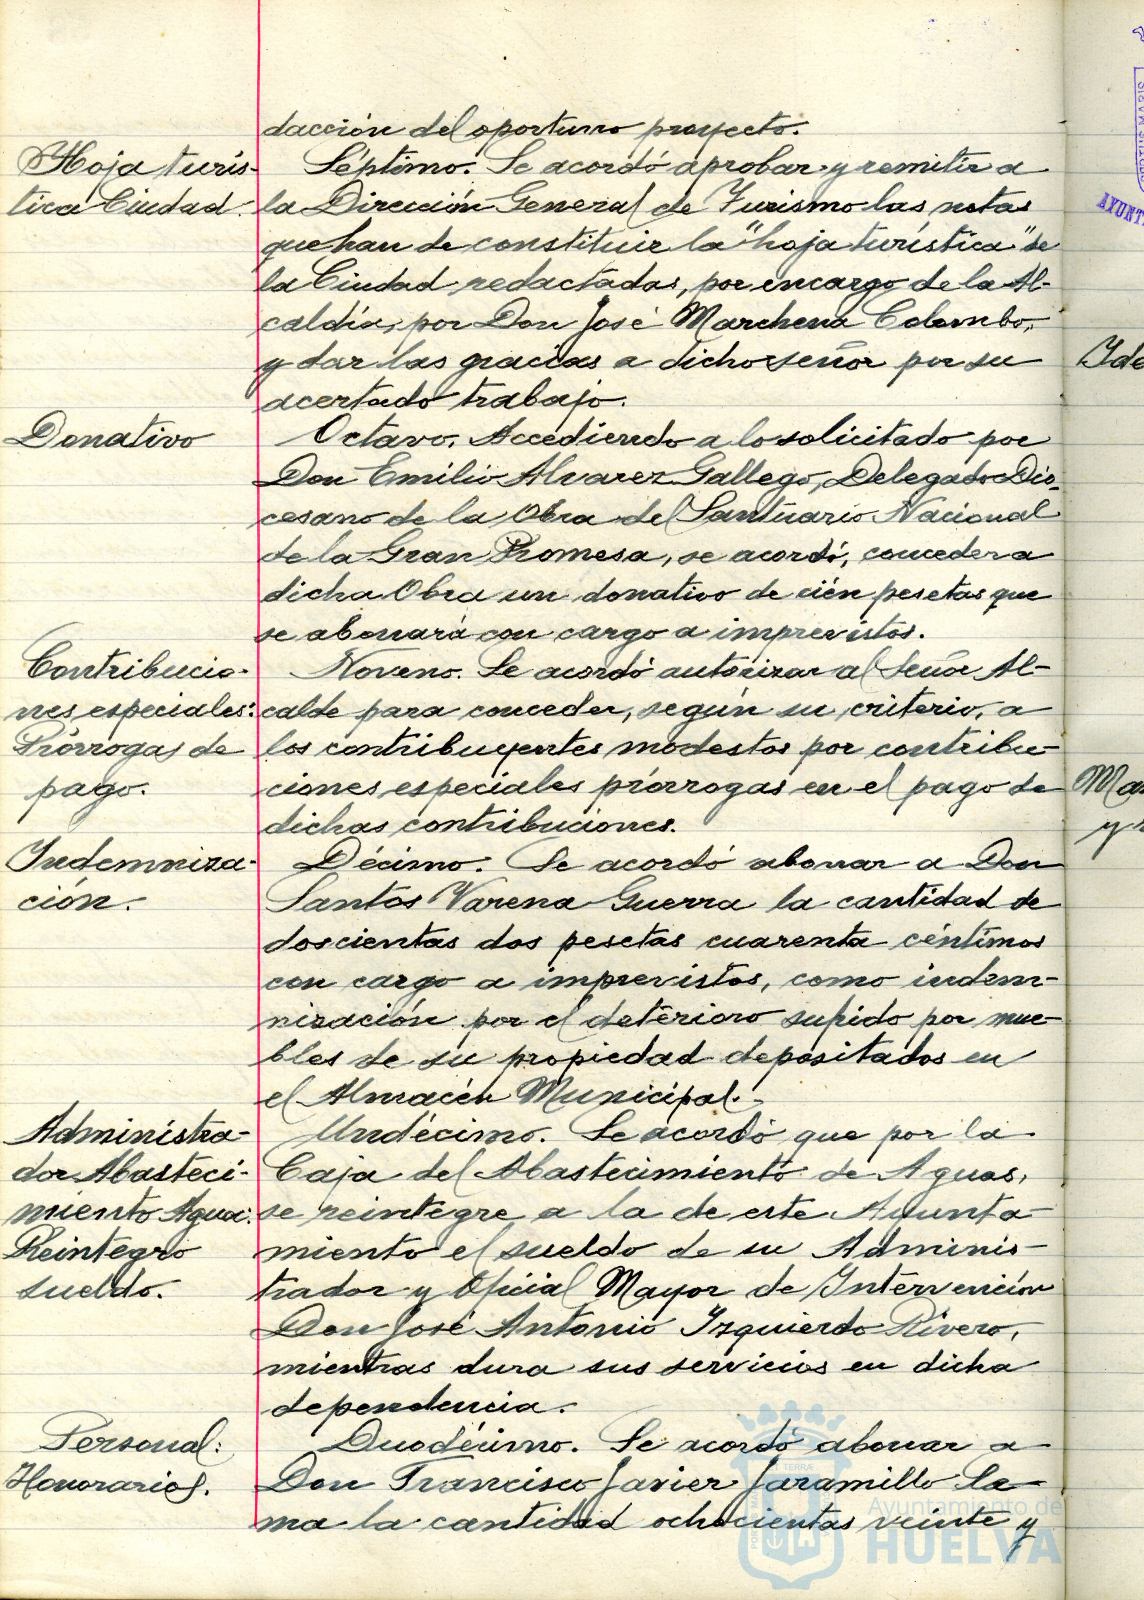 dacción del oportuno proyecto.
Hoja turís-
tica Ciudad.
Séptimo. Se acordó aprobar y remitir a
la Dirección General de Turismo las notas
que han de constituir la "hoja turística" de
la Ciudad redactadas, por encargo de la Al-
caldía, por Don José Marchena Colombo,
y dar las gracias a dicho señor por su
acertado trabajo.
Donativo
Octavo. Accediendo a lo solicitado por
Don Emilio Alvarez Gallego, Delegado Dio-
cesano de la Obra del Santuario Nacional
de la Gran Promesa, se acordó, conceder a
dicha Obra un donativo de cién pesetas que
se abonará con cargo a imprevistos.
Contribucio-
nes especiales:
Prórrogas de
pago.
Noveno. Se acordó autorizar al Señor Al-
calde para conceder, según su criterio, a
los contribuyentes modestos por contribu-
ciones especiales prórrogas en el pago de
dichas contribuciones.
Indemniza-
ción.
Décimo. Se acordó abonar a Don
Santos Varena Guerra la cantidad de
doscientas dos pesetas cuarenta céntimos
con cargo a imprevistos, como indem-
nización por el deterioro sufrido por mue-
bles de su propiedad depositados en
el Almacén Municipal.-
Administra-
dor Abasteci-
miento Agua:
Reintegro
sueldo.
Undécimo. Se acordó que por la
Caja del Abastecimiento de Aguas,
se reintegre a la de este Ayunta-
miento el sueldo de su Adminis-
trador y Oficial Mayor de Intervención
Don José Antonio Izquierdo Rivero,
mientras dura sus servicios en dicha
dependencia.
Personal:
Honorarios.
Duodécimo. Se acordó abonar a
Don Francisco Javier Jaramillo La-
ma la cantidad ochocientas veinte y
Ayuntamiento de
HUELVA